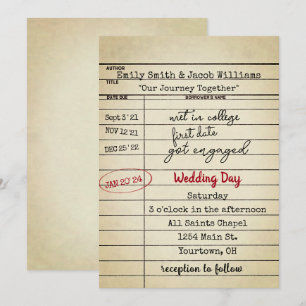 AUTHOR
Emily Smith & Jacob Williams
TITLE
"Our Journey Together"
DATE DUE BORROWER'S NAME
Sept 3 '21 met in college
NOV 12 '21 first date
DEC 25 '22 got engaged
JAN 20 '24 Wedding Day
Saturday
3 o'clock in the afternoon
All Saints Chapel
1254 Main St.
Yourtown, OH
reception to follow